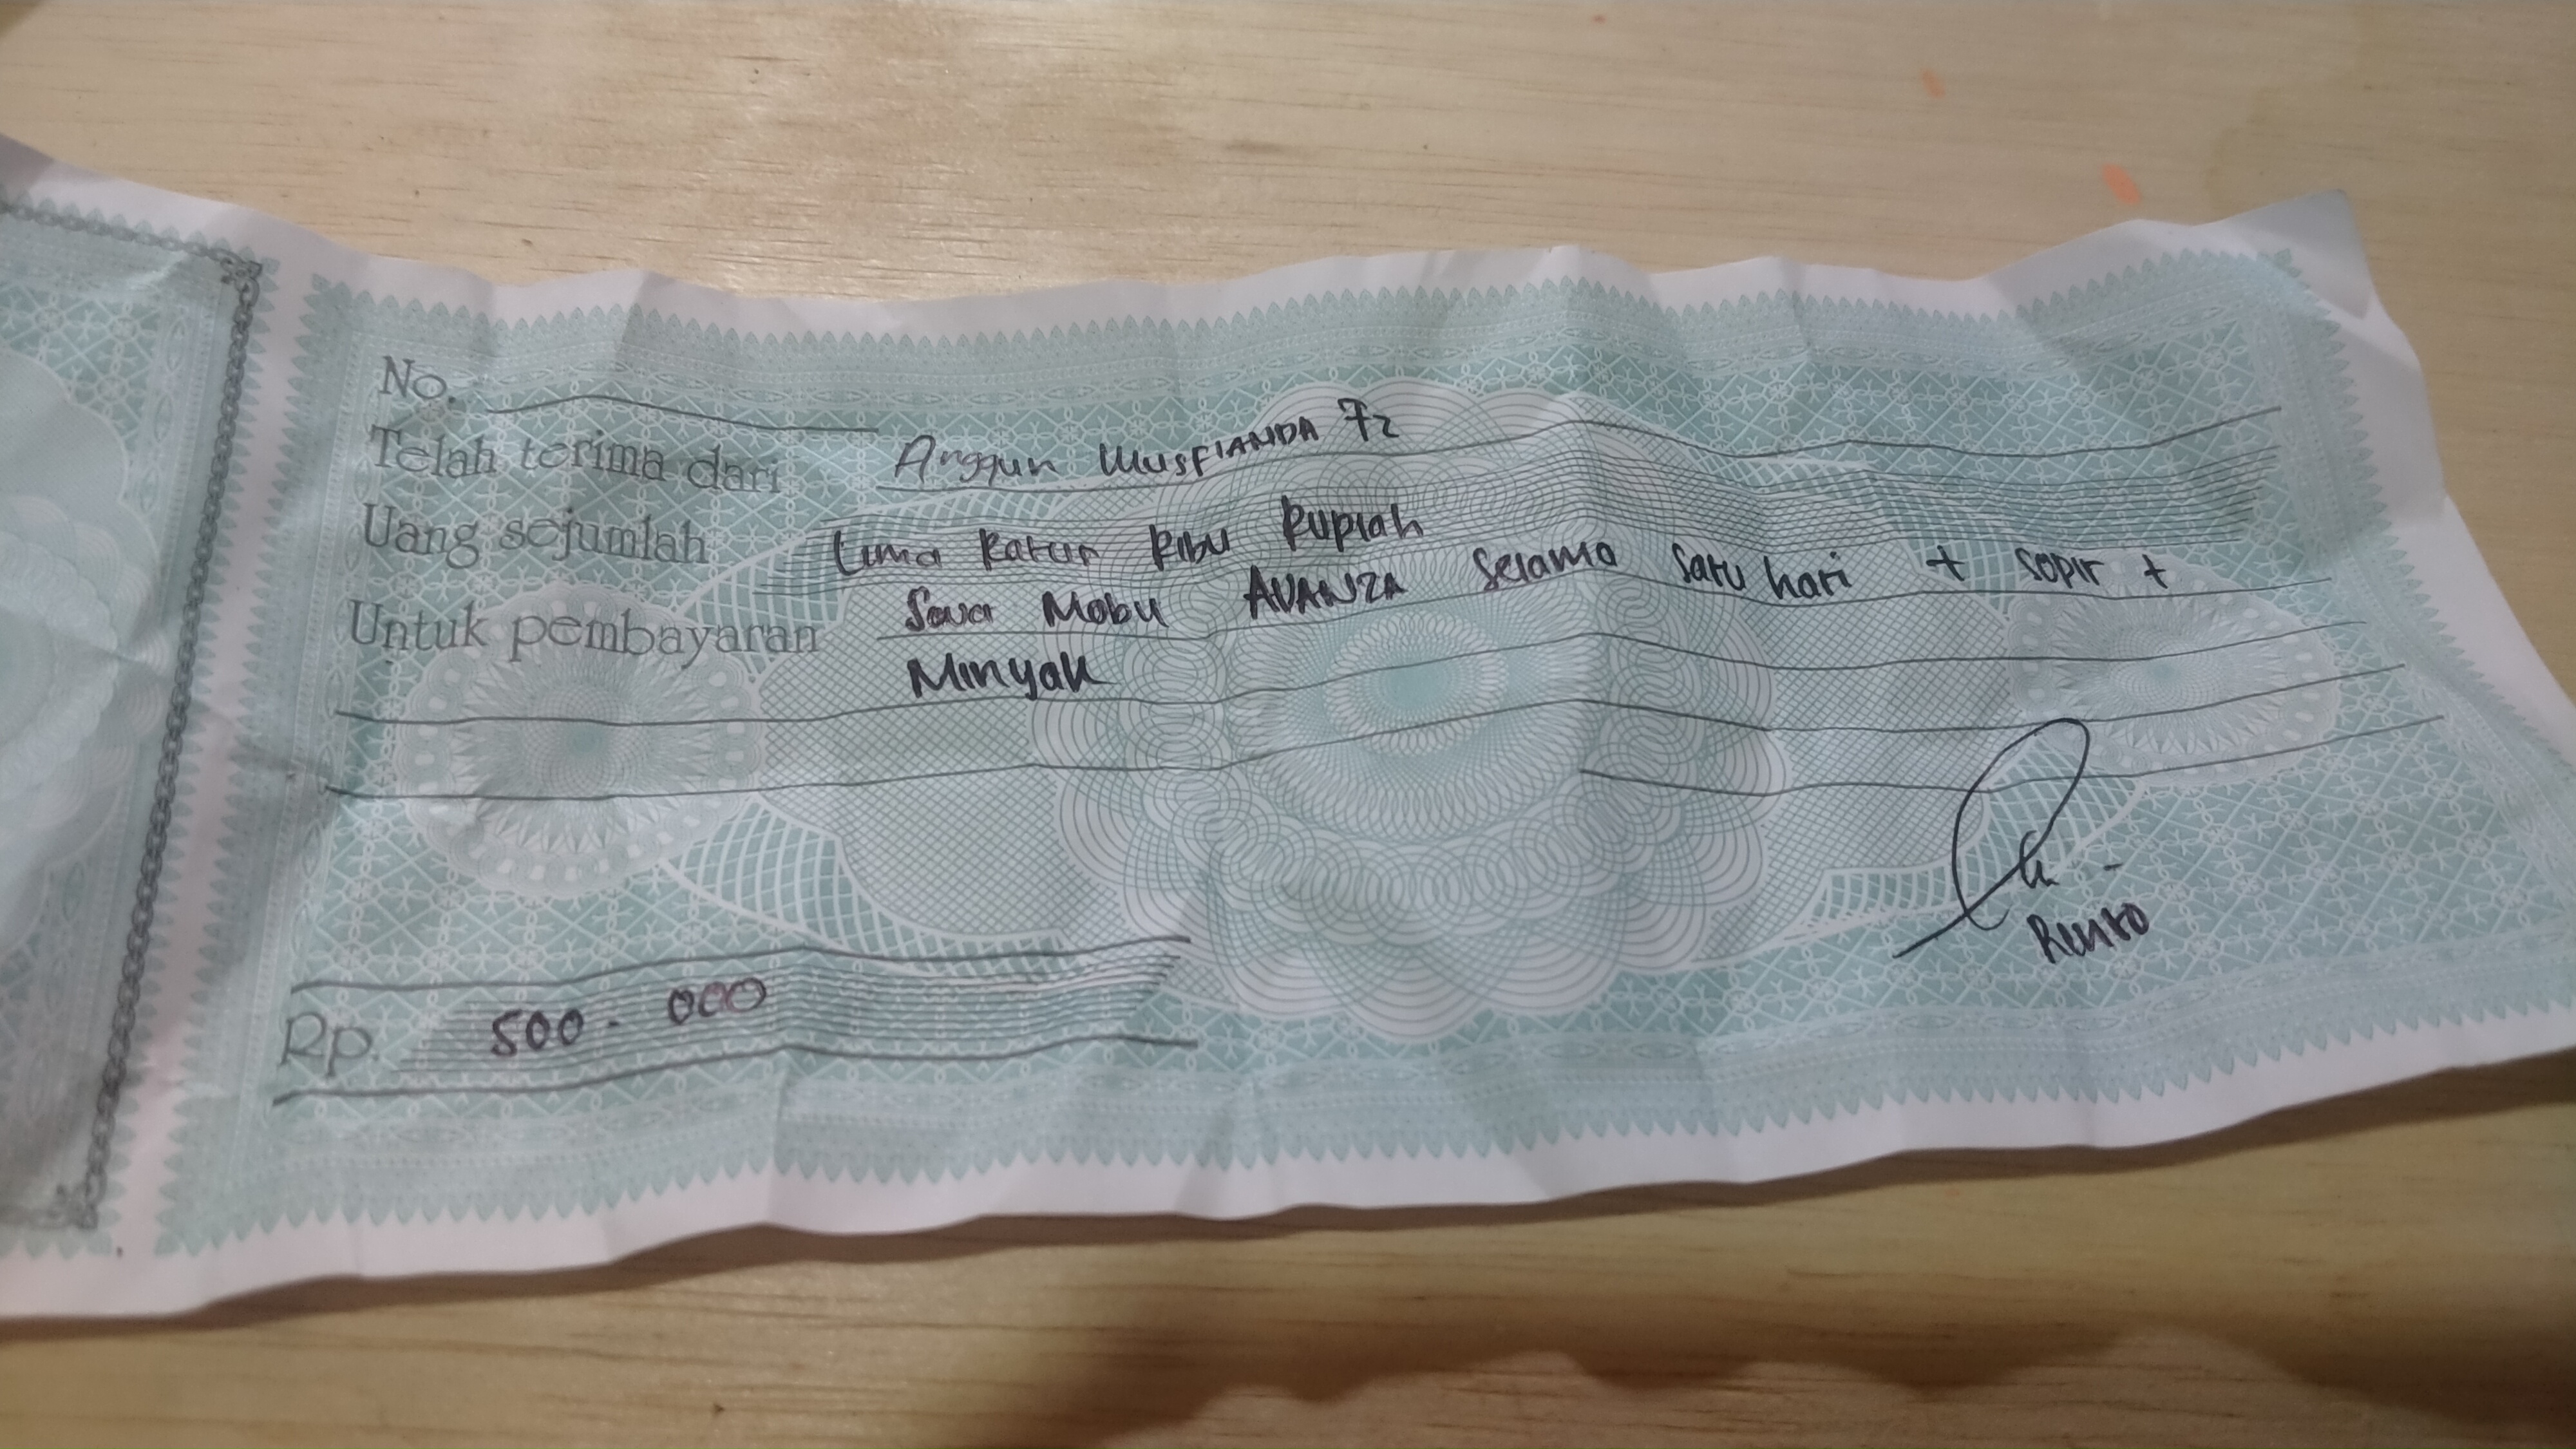 No.
Telah terima dari Anggun WUSFIANDA Fz
Uang sejumlah Lima Ratus Ribu Rupiah
Untuk pembayaran Sewa Mobil AVANZA Selama satu hari + sopir +
Minyak
Rp. 500.000